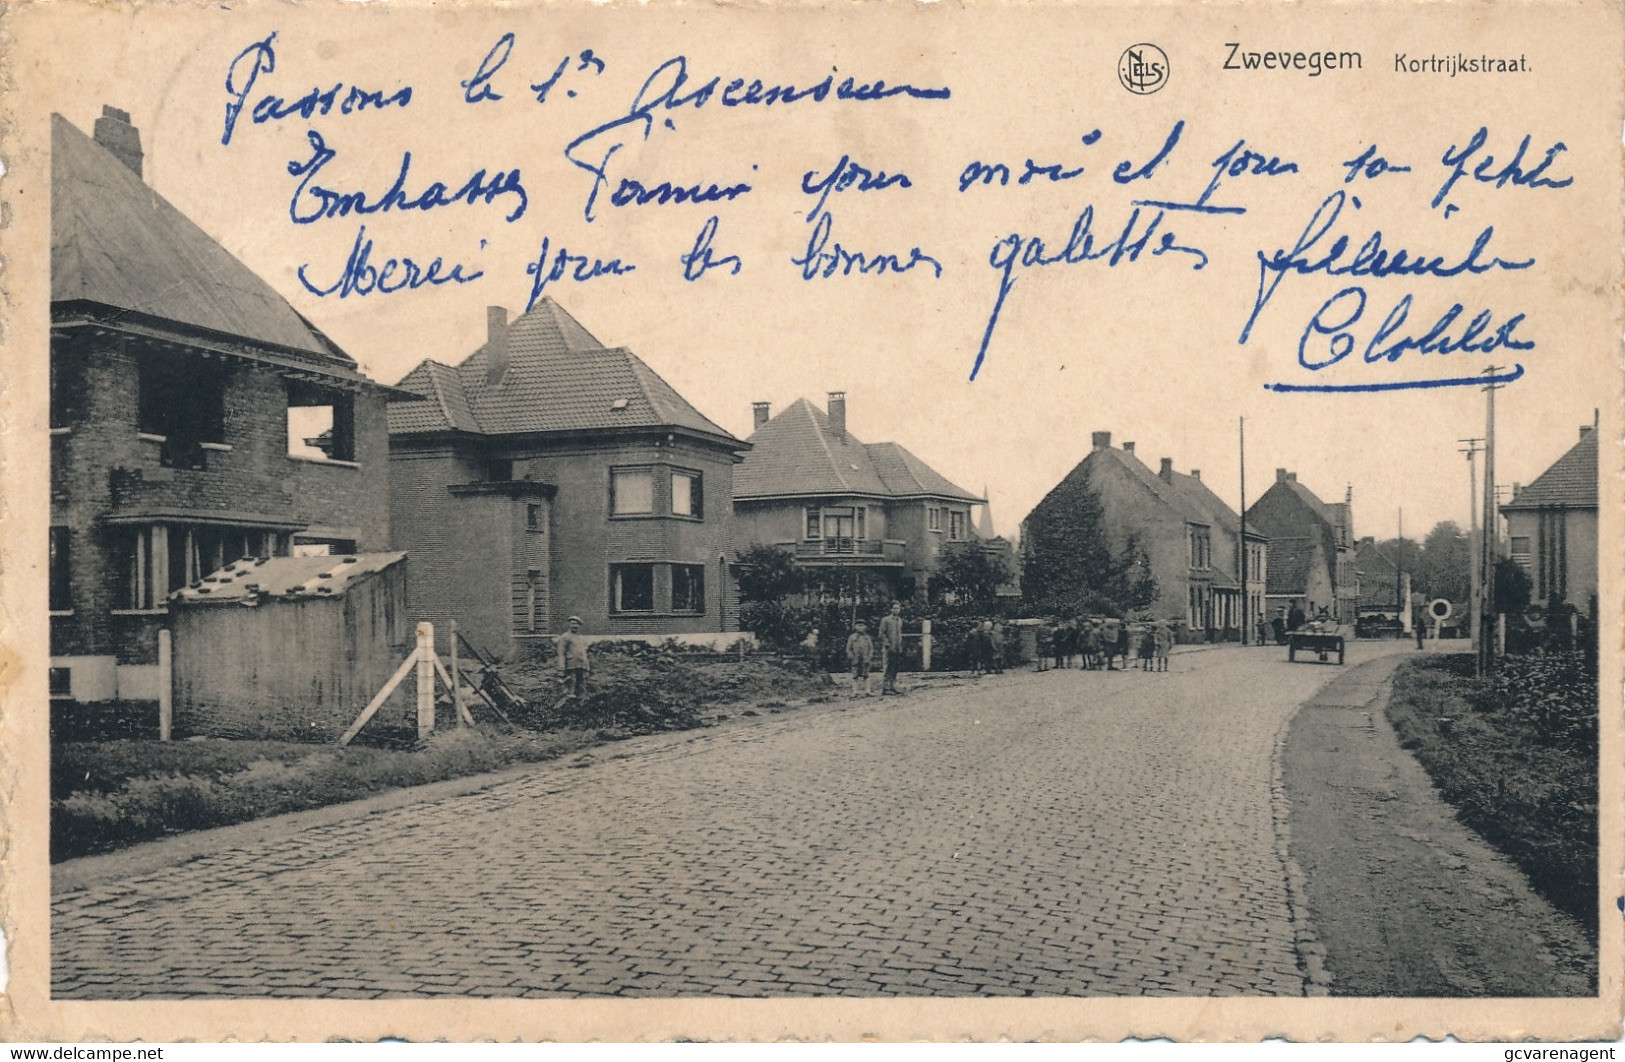 NELS
Zwevegem Kortrijkstraat.
Passons le 1er Ascenseur
Embrasse Firmin pour moi et pour sa fête
Merci pour les bonnes galettes
Clotilde
delcampe.net
gcvarenagent